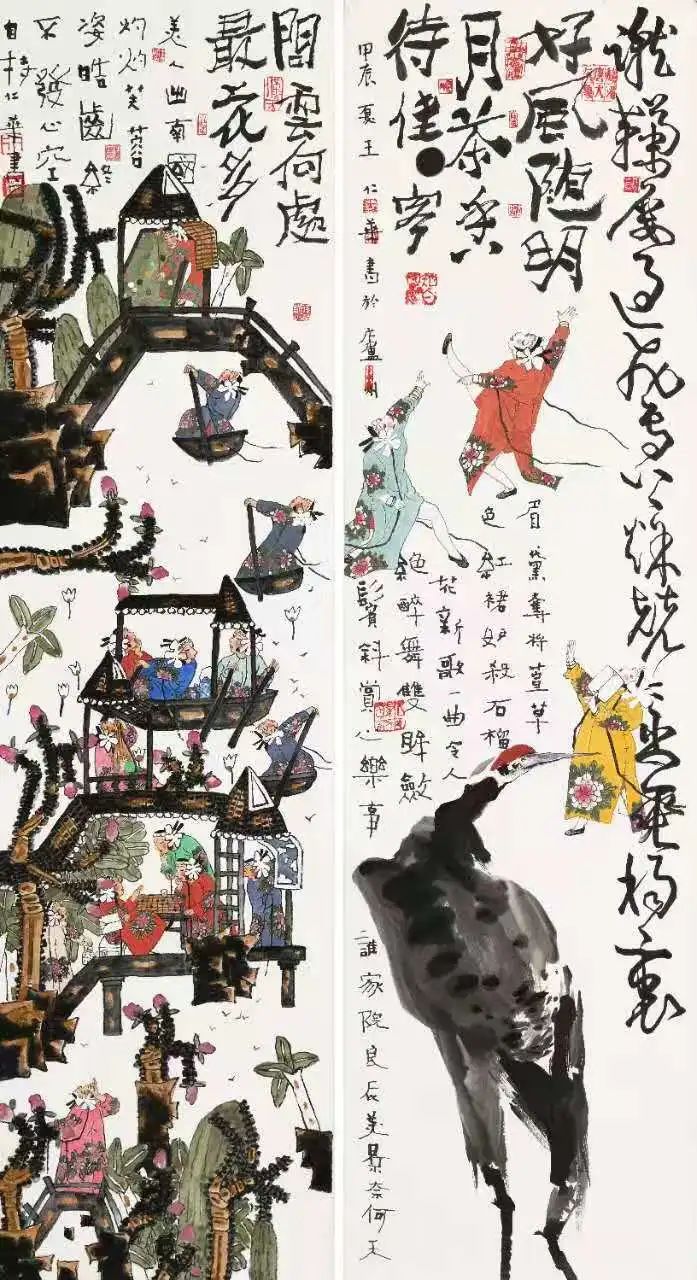 蹴鞠屢過飛鳥上秋千競出垂楊裏
好風随明
月茶香
待佳客
甲辰夏王仁華書於廬州
眉黛奪將萱草
色紅裙妒殺石榴
花新歌一曲令人
醉舞雙眸斂
鬢斜賞心樂事
誰家院良辰美景奈何天
問雲何處
最花多
美人出南國
灼灼芙蓉
姿皓齒終
不發心空
自持仁華書